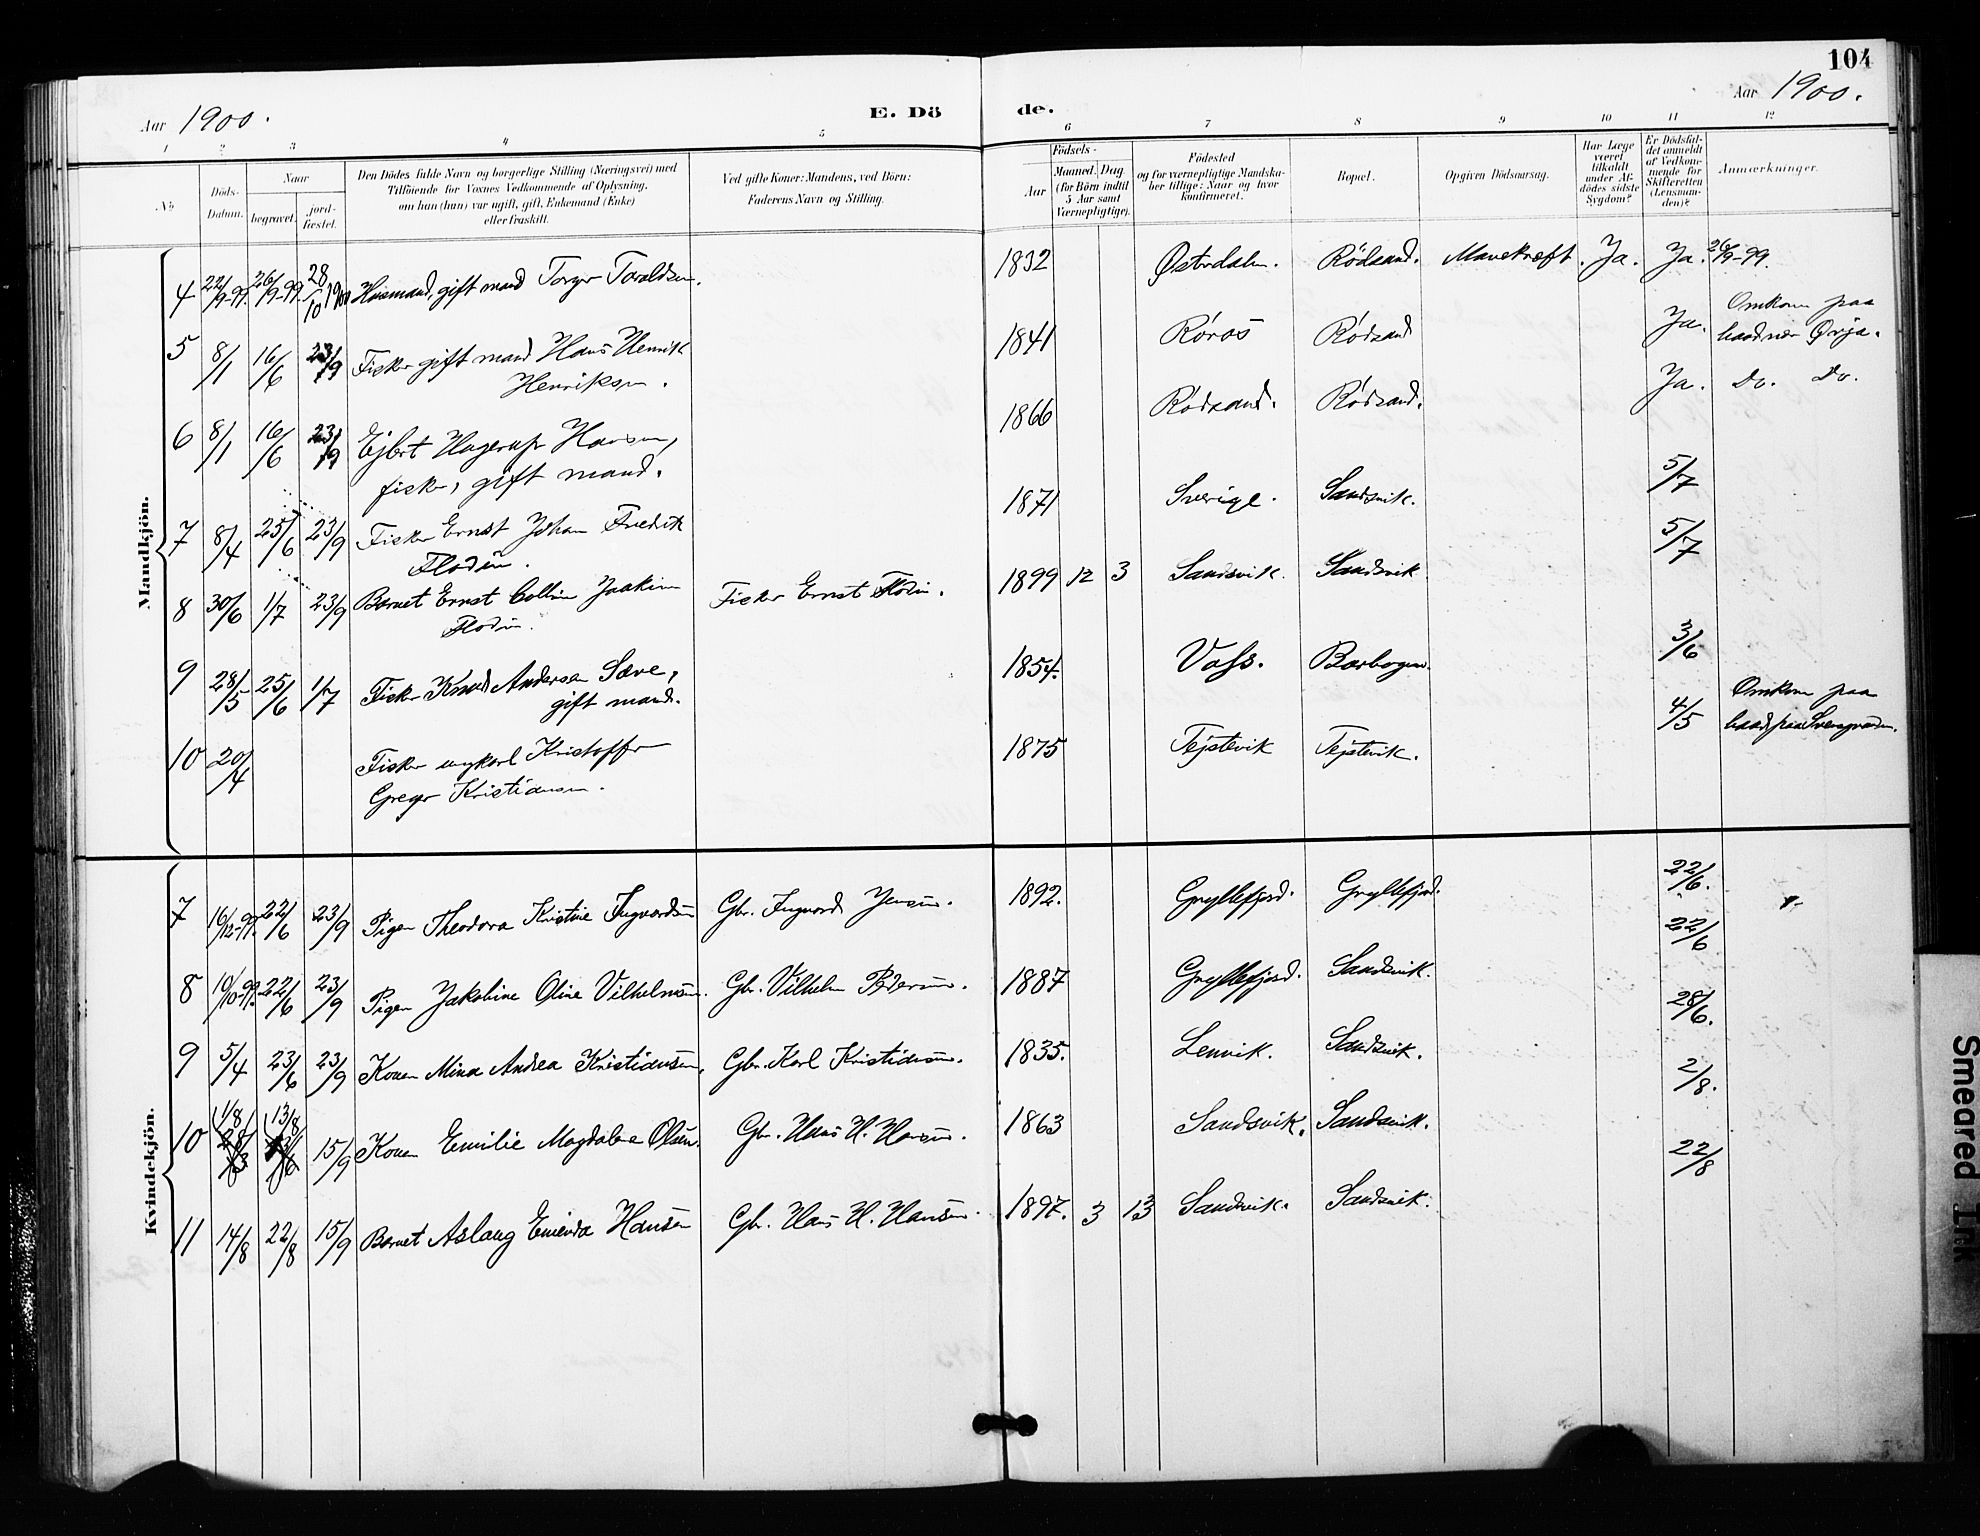 104
Aar 1900.
E. Dö de.
Aar 1900.
1 2 3 4 5 6 7 8 9 10 11 12
No.
Döds-Datum.
Naar
begravet.
jord-fæstet.
Den Dödes fulde Navn og borgerlige Stilling (Næringsvei) med
Tilföiende for Voxnes Vedkommende af Oplysning,
om han (hun) var ugift, gift, Enkemand (Enke)
eller fraskilt.
Ved gifte Koner: Mandens, ved Börn:
Faderens Navn og Stilling.
Födsels-
Aar
Maaned. Dag
(for Börn indtil
5 Aar samt
Værnepligtige).
Födested
og for værnepligtige Mandska-
ber tillige: Naar og hvor
konfirmeret.
Bopæl.
Opgiven Dödsaarsag.
Har Læge
været
tilkaldt
under Af-
dödes sidste
Sygdom?
Er Dödsfal-
det anmeldt
af Vedkom-
mende for
Skifteretten
(Lensman-
den)?
Anmærkninger.
Mandkjön.
4 22/9-99. 26/9-99. 28/10 1900 Husmand, gift mand Torger Toraldsen. 1832 Østerdalen. Rödsand. Mavekræft. Ja. Ja. 26/9-99.
5 8/1 16/6 23/9 Fisker gift mand Hans Henrik
Henriksen. 1841 Röros Rödsand Ja. Omkom paa
baad nær
6 8/1 16/6 23/9 Ejbert Hagerup Hansen,
fisker, gift mand. 1866 Rödsand. Rödsand. Ja. Do. Do.
7 8/4 25/6 23/9 Fisker Ernst Johan Fredrik
Flodin. 1871 Sverige. Sandsvik. 5/7
8 30/6 1/7 23/9 Barnet Ernst Collin Joakim
Flodin. Fisker Ernst Flodin. 1899 12 3 Sandsvik. Sandsvik 5/7
9 28/5 25/6 1/7 Fisker Knud Andersen Sæve,
gift mand. 1854. Voss. Bærbogen. 3/6
10 20/4 Fisker ungkarl Kristoffer
Greger Kristiansen. 1875 Tejstevik Tejstevik. 4/5 Omkom paa
baad paa
Kvindekjön.
7 16/12-99. 22/6 23/9 Pigen Theodora Kristine Ingvardsen Gbr. Ingvard Jensen. 1892. Gryllefjord. Gryllefjord. 22/6.
8 10/10-99. 22/6 23/9 Pigen Jakobine Oline Vilhelmsen. Gbr. Vilhelm Pedersen. 1887 Gryllefjord. Sandsvik. 22/6
9 5/4 23/6 23/9 Konen Mina Andrea Kristiansen. Gbr. Karl Kristiansen. 1835. Lenvik. Sandsvik. 28/6.
10 1/8 13/8 15/9 Konen Emilie Magdalene Olsen. Gbr. Hans H. Hansen. 1863 Sandsvik. Sandsvik. 2/8.
11 14/8 22/8 15/9 Barnet Aslaug Emenda Hansen Gbr. Hans H. Hansen. 1897. 3 13 Sandsvik. Sandsvik. 22/8
Smeared Ink